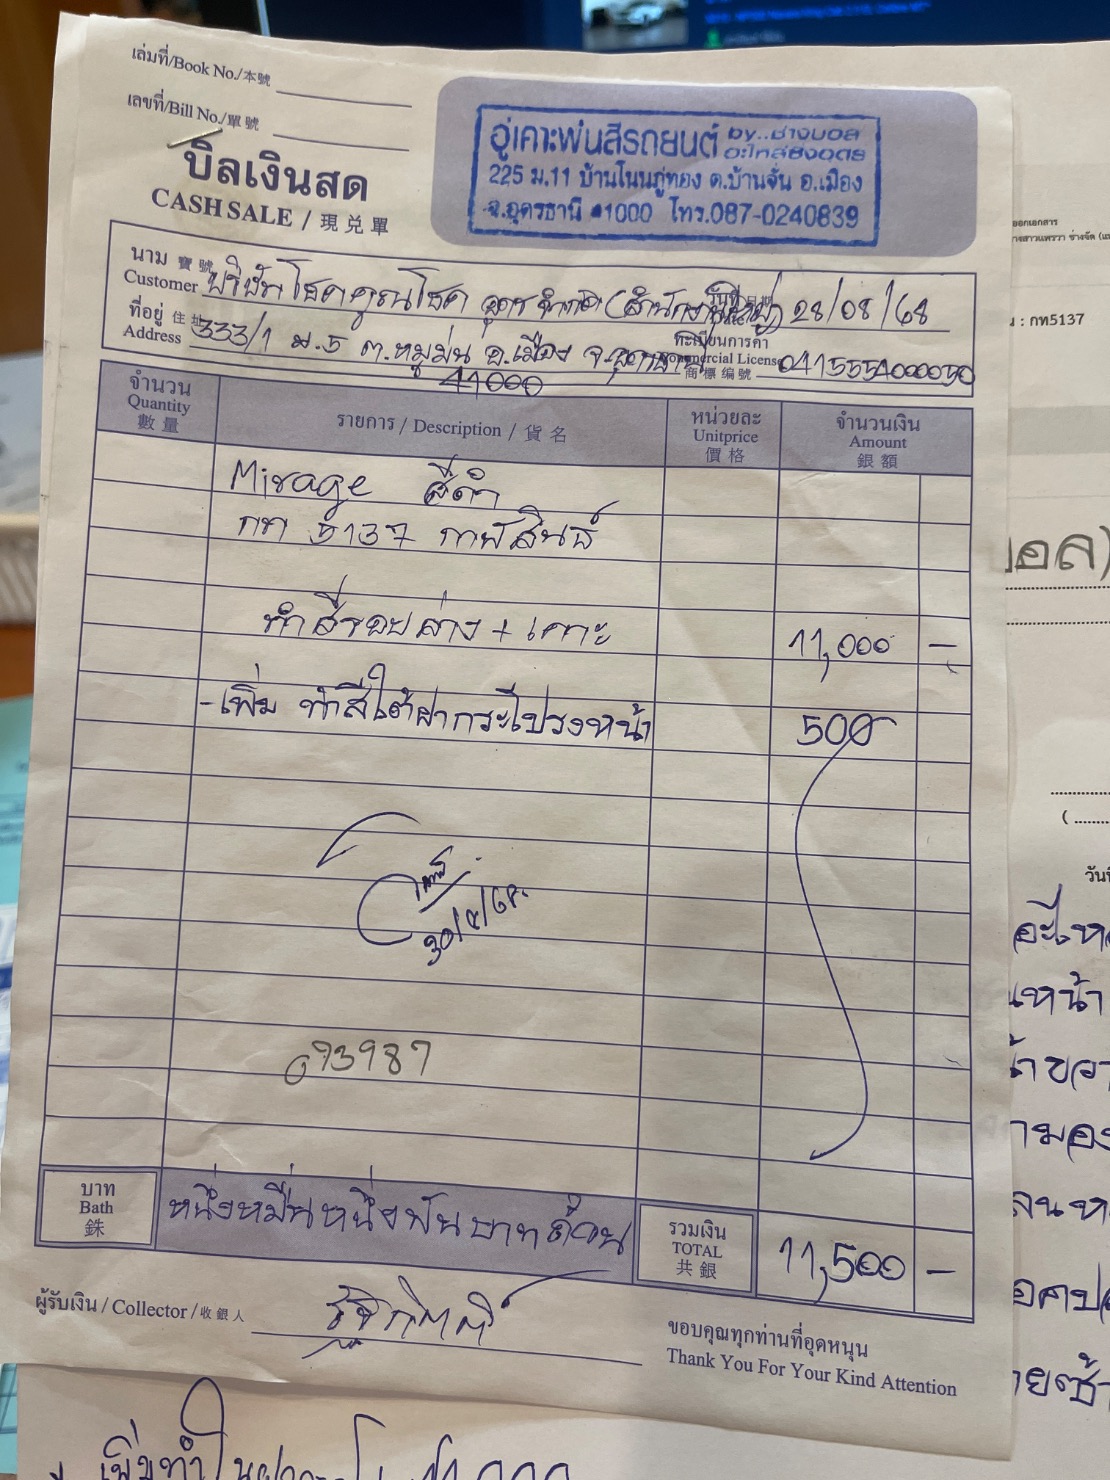 เล่มที่/Book No./本號
เลขที่/Bill No./單號
บิลเงินสด
CASH SALE / 現兑單
อู่เคาะพ่นสีรถยนต์ by..ช่างบอล
อะไหล่ยิ่งอุดร
225 ม.11 บ้านโนนภู่ทอง ต.บ้านจั่น อ.เมือง
จ.อุดรธานี 41000 โทร.087-0240839
นาม 寶號
Customer บริษัท โชคคูณโชค อุดร จำกัด (สำนักงานใหญ่) 28/08/68
ที่อยู่ 住址
Address 333/1 ม.5 ต.หมูม่น อ.เมือง จ.อุดรธานี 41000
ทะเบียนการค้า
Commercial License 0415554000050
商標编號
จำนวน รายการ / Description / 貨名 หน่วยละ จำนวนเงิน
Quantity Unitprice Amount
數量 價格 銀額
Mirage สีดำ
กท 5137 กาฬสินธุ์
ทำสีรอบล่าง + เคาะ 11,000 –
- เพิ่ม ทำสีใต้ฝากระโปรงหน้า 500
30/8/68.
693987
บาท
Bath
銖
หนึ่งหมื่นหนึ่งพันบาทถ้วน
รวมเงิน
TOTAL
共銀
11,500 –
ผู้รับเงิน / Collector / 收銀人
ขอบคุณทุกท่านที่อุดหนุน
Thank You For Your Kind Attention
ออกเอกสาร
: กท5137
บอล)
วันที่
นหน้า